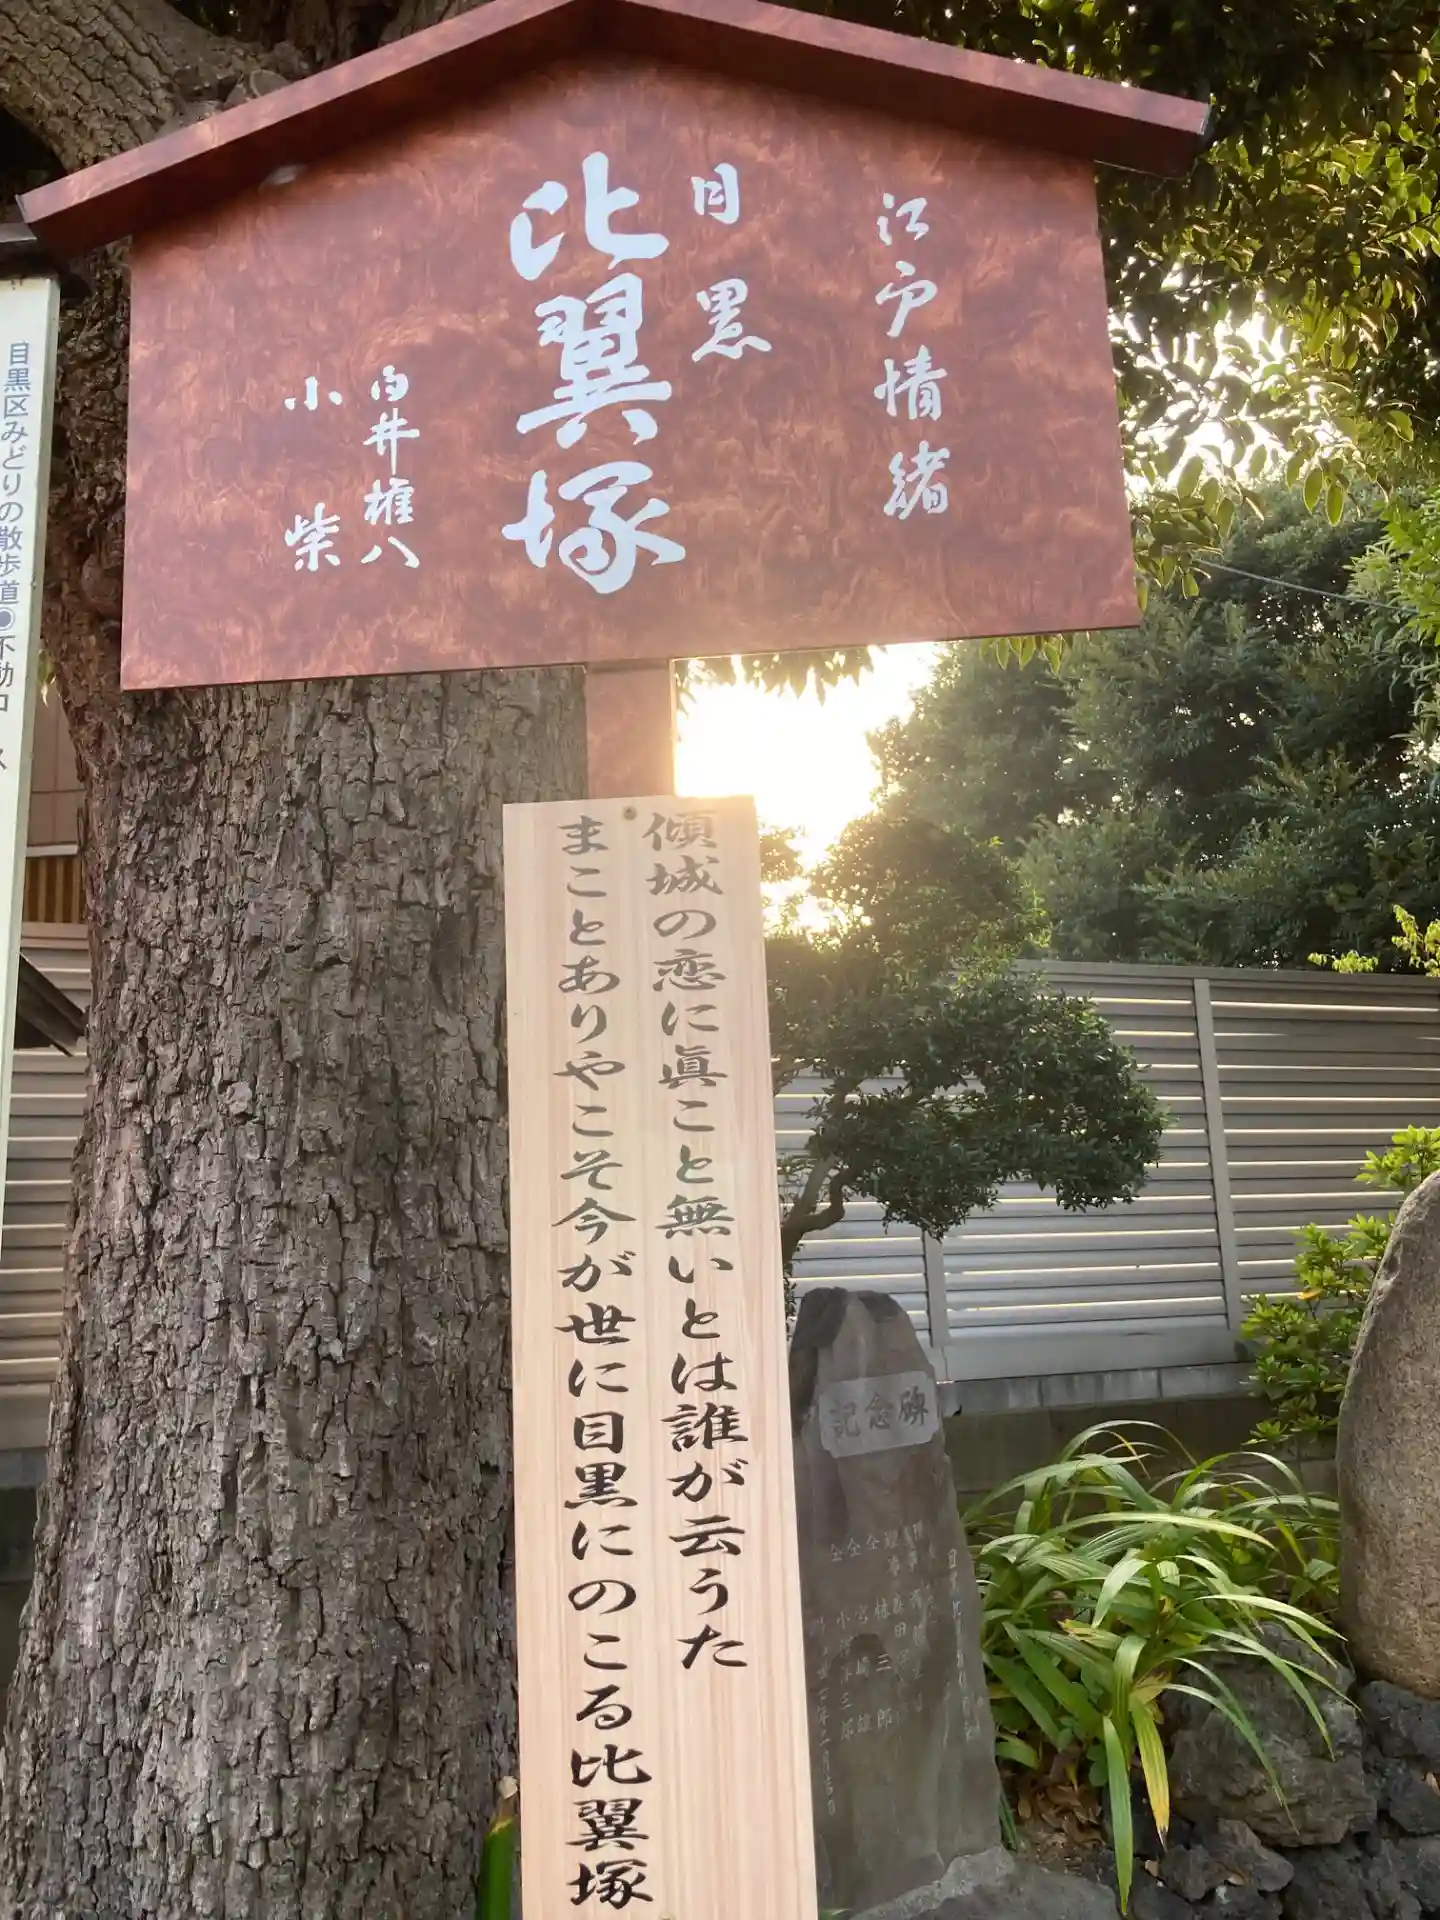 江戸情緒
目黒
比翼塚
白井権八
小柴
傾城の恋に眞こと無いとは誰が云うた
まことありやこそ今が世に目黒にのこる比翼塚
目黒区みどりの散歩道◉不動コース
記念碑